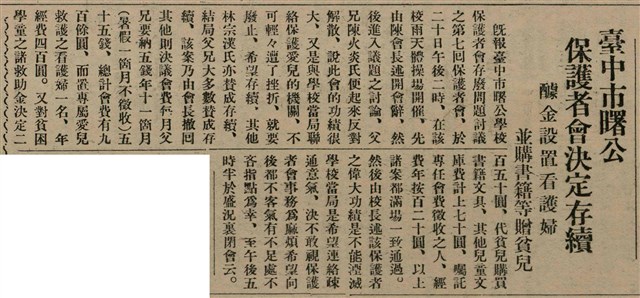 臺中市曙公
保護者會決定存續
醵金設置看護婦
並購書籍等贈貧兒
既報臺中市曙公學校
保護者會存廢問題討議
之第七回保護者會、於
二十日午後二時、在該
校雨天體操場開催、先
由陳會長述開會辭、然
後進入議題之討論、父
兄陳火炎氏便起來反對
解散、說此會的功績很
大、又是與學校當局聯
絡保護愛兒的機關、不
可輕々遭了挫折、就要
廢止、希望存續、其他
林宗漢氏亦贊成存續、
結局父兄大多數贊成存
續、該案乃由會長撤回
其他則決議會費每月父
兄要納五錢年十一箇月
(暑假一箇月不徵收)五
十五錢、總計會費有九
百餘圓、而置專屬愛兒
救護之看護婦一名、年
經費四百圓。又對貧困
學童之諸救助金決定二
百五十圓、代貧兒購買
書籍文具、其他兒童文
庫費計上七十圓、囑託
專任會費徵收之人、經
費年按百二十圓、以上
諸案都滿場一致通過。
然後由校長述該保護者
之偉大功績是不能湮滅
學校當局是希望連絡疎
通意氣、決不敢視保護
者會事務爲麻煩希望向
後都不客氣有不足處不
吝指點爲幸、至午後五
時半於盛況裏閉會云。